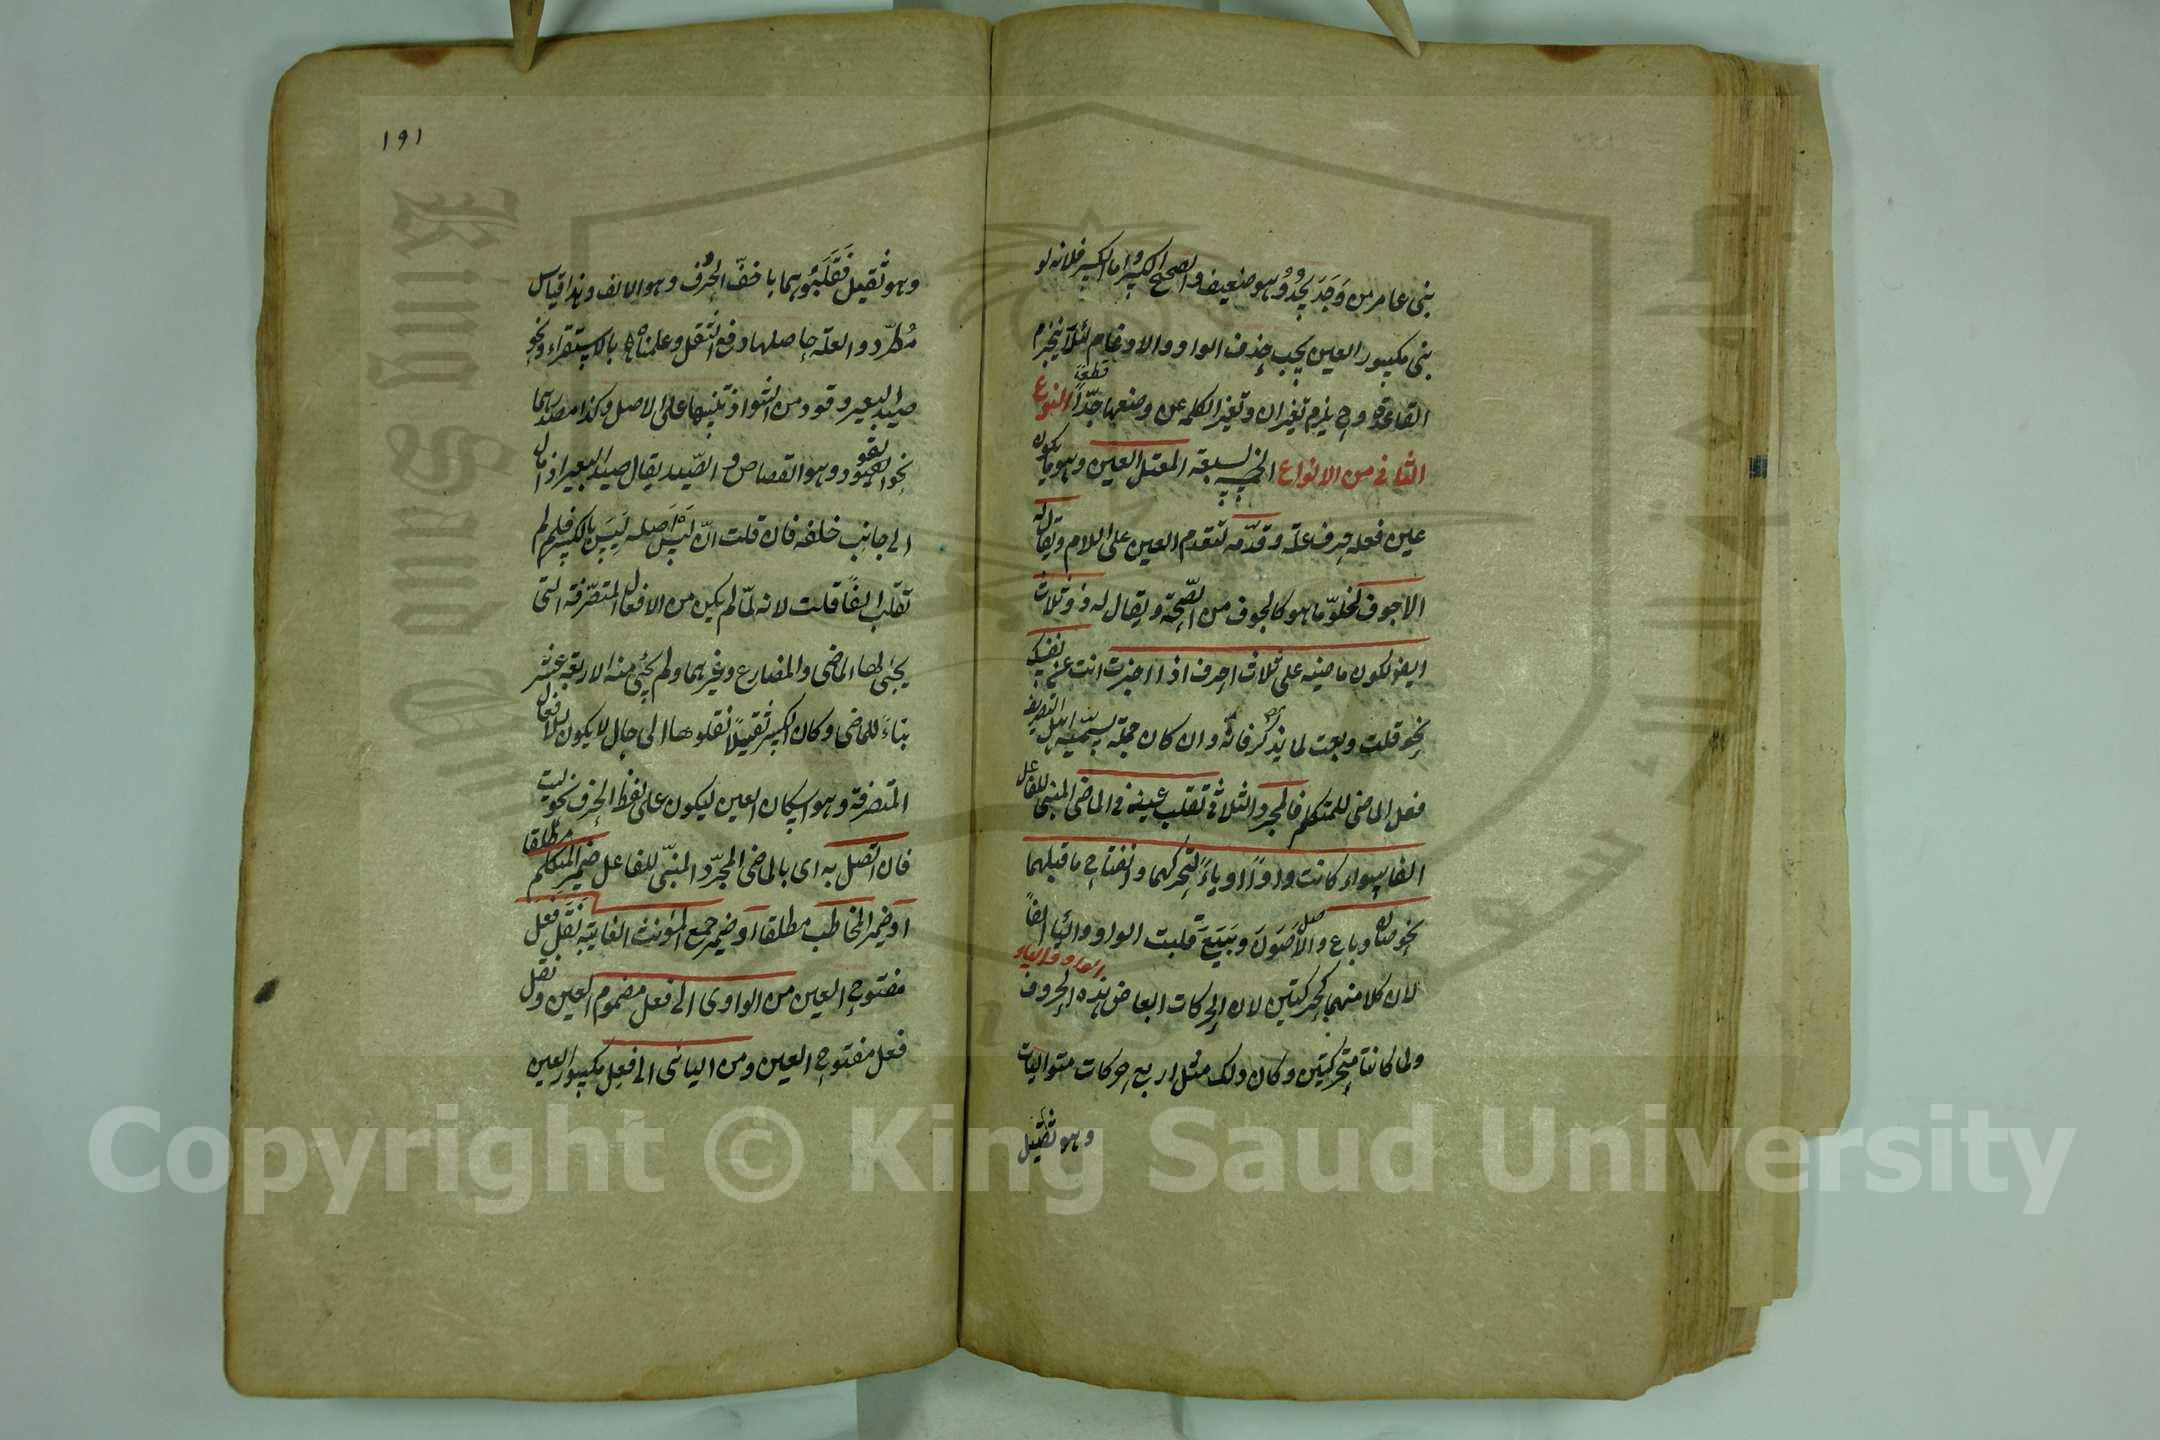 بنى عامر من وَجَدَ يَجُدُ وهو ضعيف والصحيح الكسر واما الكسر فلانه لو
بنى مكسور العين يجب حذف الواو والادغام لئلا ينخرم
القاعدة وح يلزم تغيران وتغير الكلمه عن وضعها جدّاً قطعًا النوع
الثانى من الانواع السبعة المعتل العين وهو ما يكون
عين فعله حرف علة وقدّمه لتقدم العين على اللام ويقال له
الاجوف لخلوّ ما هو كالجوف من الصّحة ويقال له ذو ثلاثة
ايضا لكون ماضيه على ثلاث احرف اذا اخبرت انت عن نفسك
نحو قلت وبعت لما يذكر فانّه وان كان جملة يسمّيه اهل التصريف
فعل الماضى للمتكلم فالمجرد الثلاثى تقلب عينه فى الماضى المبنى للفاعل
الفا سواء كانت واوًا او ياءً لتحركهما وانفتاح ما قبلهما
نحو صان وباع والاصل صَوَنَ وبَيَعَ قلبت الواو والياء الفاً
لان كلا منهما كحركتين لان الحركات ابعاض هذه الحروف الواو والياء
ولما كانتا متحركتين وكان ذلك مثل اربع حركات متواليات
وهو ثقيل
١٩١
وهو ثقيل فقلبوهما باخفّ الحرف وهو الالف وهذا قياس
مُطرّد والعلة حاصلها دفع الثقل وعلمناها بالاستقراء ونحو
صيد البعير وقود من الشواذ تنبيها على الاصل وكذا مصدرهما
نحو القود وهو القصاص والصّيد يقال صيد البعير اذا مال
الى جانب خلفه فان قلت انّ لَيْسَ اصله لَيِسَ بالكسر فلم لم
تقلب الفًا قلت لانه لمّا لم يكن من الافعال المتصرّفة التى
يجئ لها الماضى والمضارع وغيرهما ولم يجئ منه الا اربعة عشر
بناءً للماضى وكان الكسر ثقيلًا نقلوها الى حال لا يكون للافعال
المتصرفة وهو اسكان العين ليكون على لفظ الحرف نحو ليت
فان اتصل به اى بالماضى المجرّد المبنى للفاعل ضمير المتكلم مطلقا
او ضمير المخاطب مطلقا او ضمير جمع المؤنث الغائبة نقل فعل
مفتوح العين من الواوى الى فعل مضموم العين ونقل
فعل مفتوح العين ومن اليائى الى فعِل مكسور العين
Copyright © King Saud University